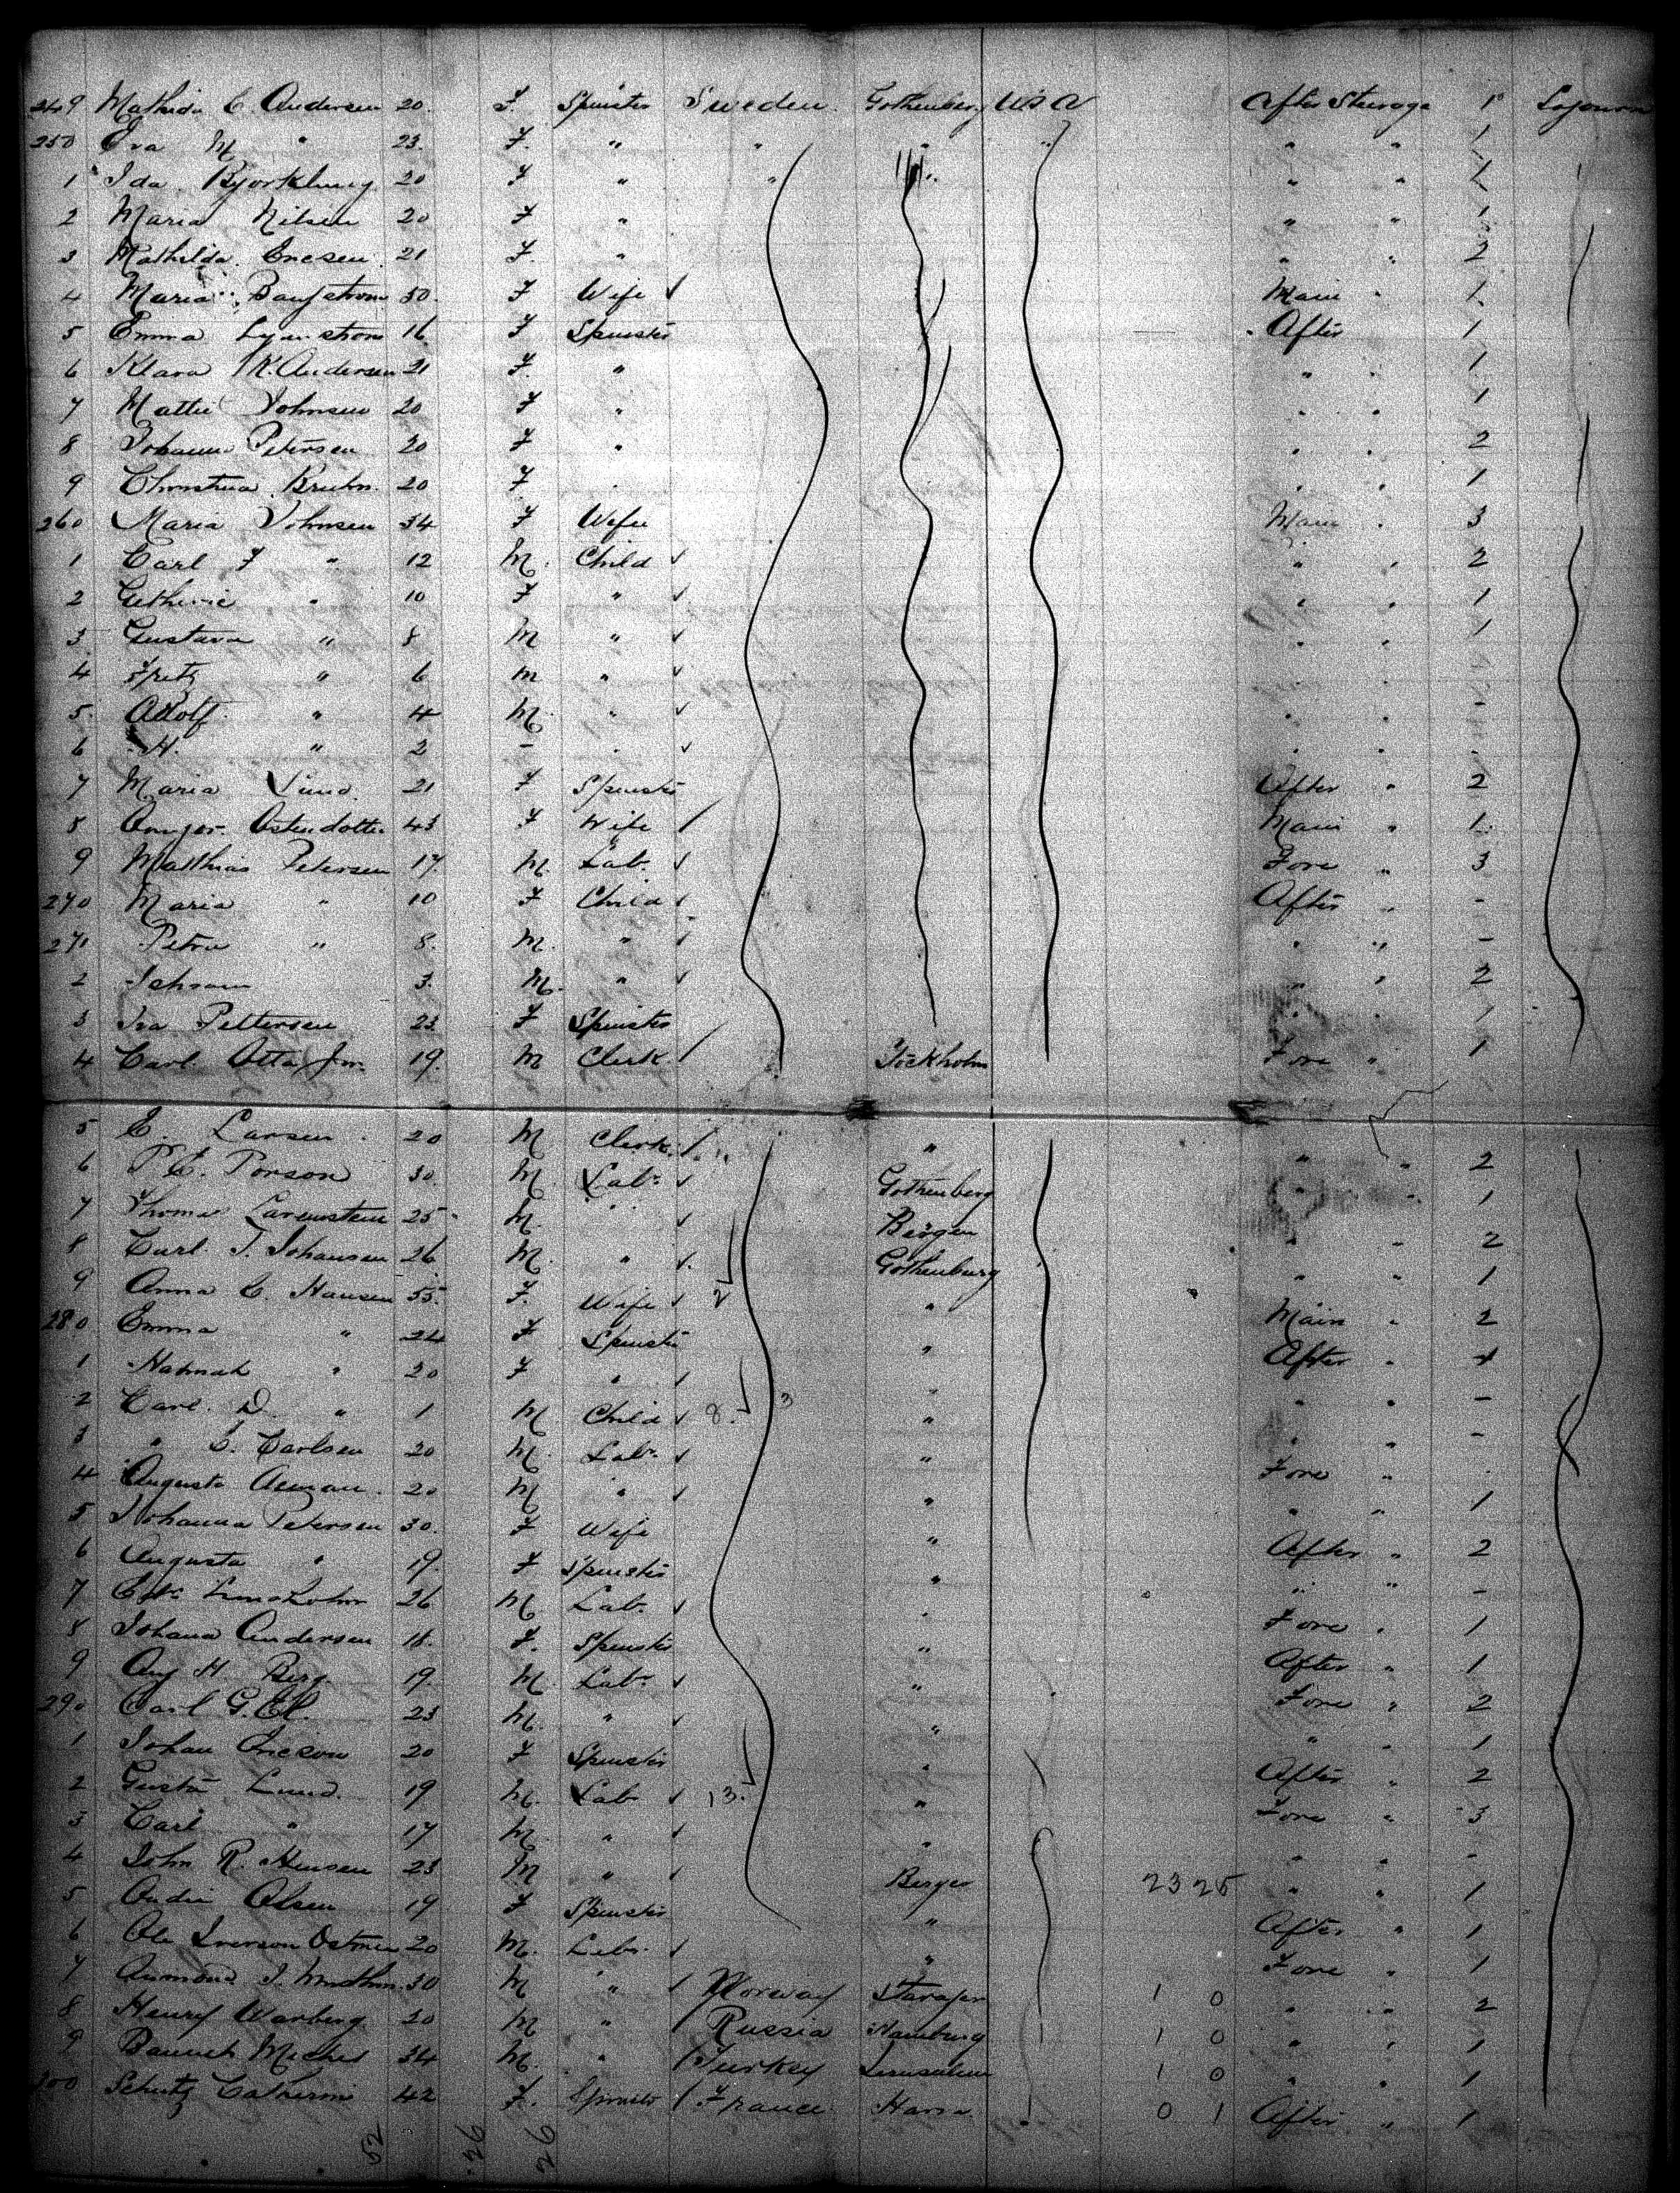 249 Mathida C. Andersen 20 F. Spinster Sweden. Gothenberg USA After Steerage 1 Sojourn
250 Eva M " 23. F. " " " " " " 1
1 Ida Bjorklung 20 F " " " " "
2 Maria Nilsen 20 F " " " 1
3 Mathilda Ericsen 21 F. " " " 2
4 Maria 50. F Wife Main " 1
5 Emma 16 F Spinster After 1
6 Klara K. Andersen 21 F. " " " 1
7 Mattie Johnsen 20 F " " " 1
8 Johanna Petersen 20 F " " " 2
9 Christina Bruhn. 20 F " " " 1
260 Maria Johnsen 34 F Wife Main " 3
1 Carl F " 12 M. Child " " 2
2 " 10 F " " " 1
3 Gustava " 8 M " " " 1
4 Fritz " 6 M " " "
5. Adolf. " 4 M. " " " -
6 H. " 2 - " " " -
7 Maria Lund. 21 F Spinster After " 2
8 43 F Wife Main " 1.
9 Matthias Petersen 17. M. Lab. Fore " 3
270 Maria " 10 F Child After " -
271 Petra " 8. M. " " " -
2 3. M. " " " 2
3 Iva Pettersen 23 F Spinster " " 1
4 Carl Otta Jnr. 19. M Clerk Tockholm Fore " 1
5 C. Larsen 20 M Clerk. " " " 2
6 P. C. Porson 30. M. Labr Gothenberg " " 1
7 Thomas Larenstein 25 M. " Bergen " " 2
8 Carl. T. Johansen 26 M. " Gothenburg " " 1
9 Anna C. Hansen 55. F. Wife 2 " Main " 2
280 Emma " 24 F Spinster " After "
1 Hannah " 20 F " " " " -
2 Carl. D. " 1 M. Child 8. 3 " " " -
3 " C. Carlsen 20 M. Labr. " Fore "
4 Augusta 20 M " " " " 1
5 Johanna Petersen 30. F Wife " After " 2
6 Augusta " 19. F Spinster " " " -
7 26 M Lab. " Fore " 1
8 Johana Andersen 18. F. Spinster " After " 1
9 Aug H Berg. 19. M. Labr " Fore " 2
290 Carl G. 23 M. " " " " 1
1 Johan Ericson 20 F Spinster " After " 2
2 Gusta Lund. 19 M. Lab 13. " Fore " 3
3 Carl " 17 M. " " " " -
4 John R. Hensen 23 M " Berger 23 25 " " 1
5 Olsen 19 F Spinster " After " 1
6 Ole Iverson 20 M. Labr. " Fore " 1
7 30 M " Norway 1 0 " " 2
8 Henry Warberg 20 M " Russia Hamburg 1 0 " " 1
9 34 M. " Turkey Jerusalem 1 0 " " 1
300 Schutz Catherine 42 F. Spinster France. Havra 0 1 After " 1
52 26 26